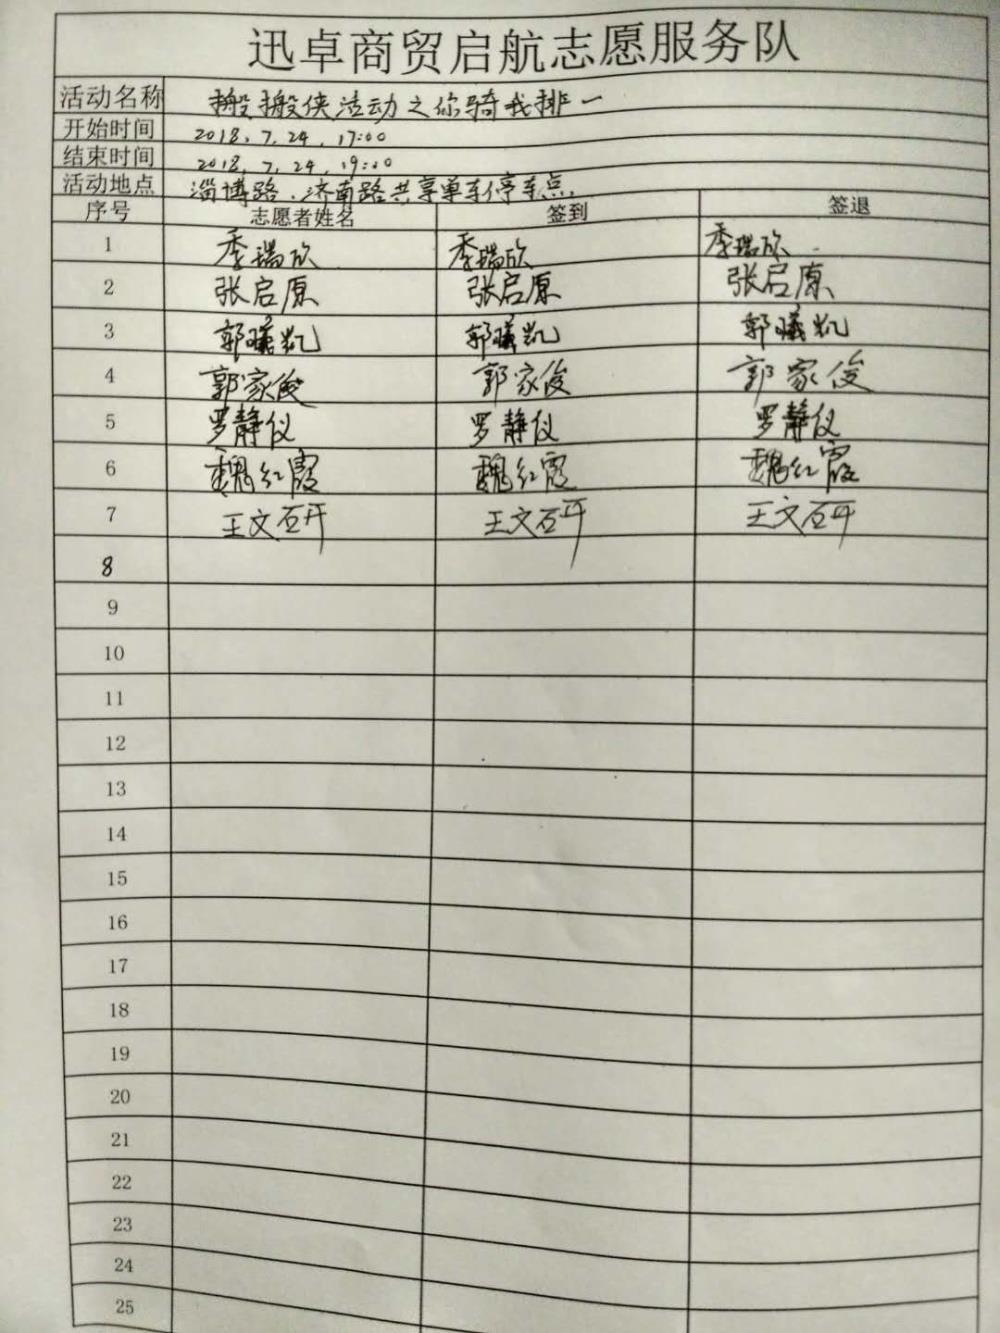 迅卓商贸启航志愿服务队
活动名称 搬搬侠活动之你骑我排一
开始时间 2018.7.24.17:00
结束时间 2018.7.24.19:00
活动地点 淄博路、济南路共享单车停车点.
序号 志愿者姓名 签到 签退
1 季瑞欣 季瑞欣 季瑞欣
2 张启原 张启原 张启原
3 郭曦凯 郭曦凯 郭曦凯
4 郭家俊 郭家俊 郭家俊
5 罗静仪 罗静仪 罗静仪
6 魏红霞 魏红霞 魏红霞
7 王文研 王文研 王文研
8
9
10
11
12
13
14
15
16
17
18
19
20
21
22
23
24
25